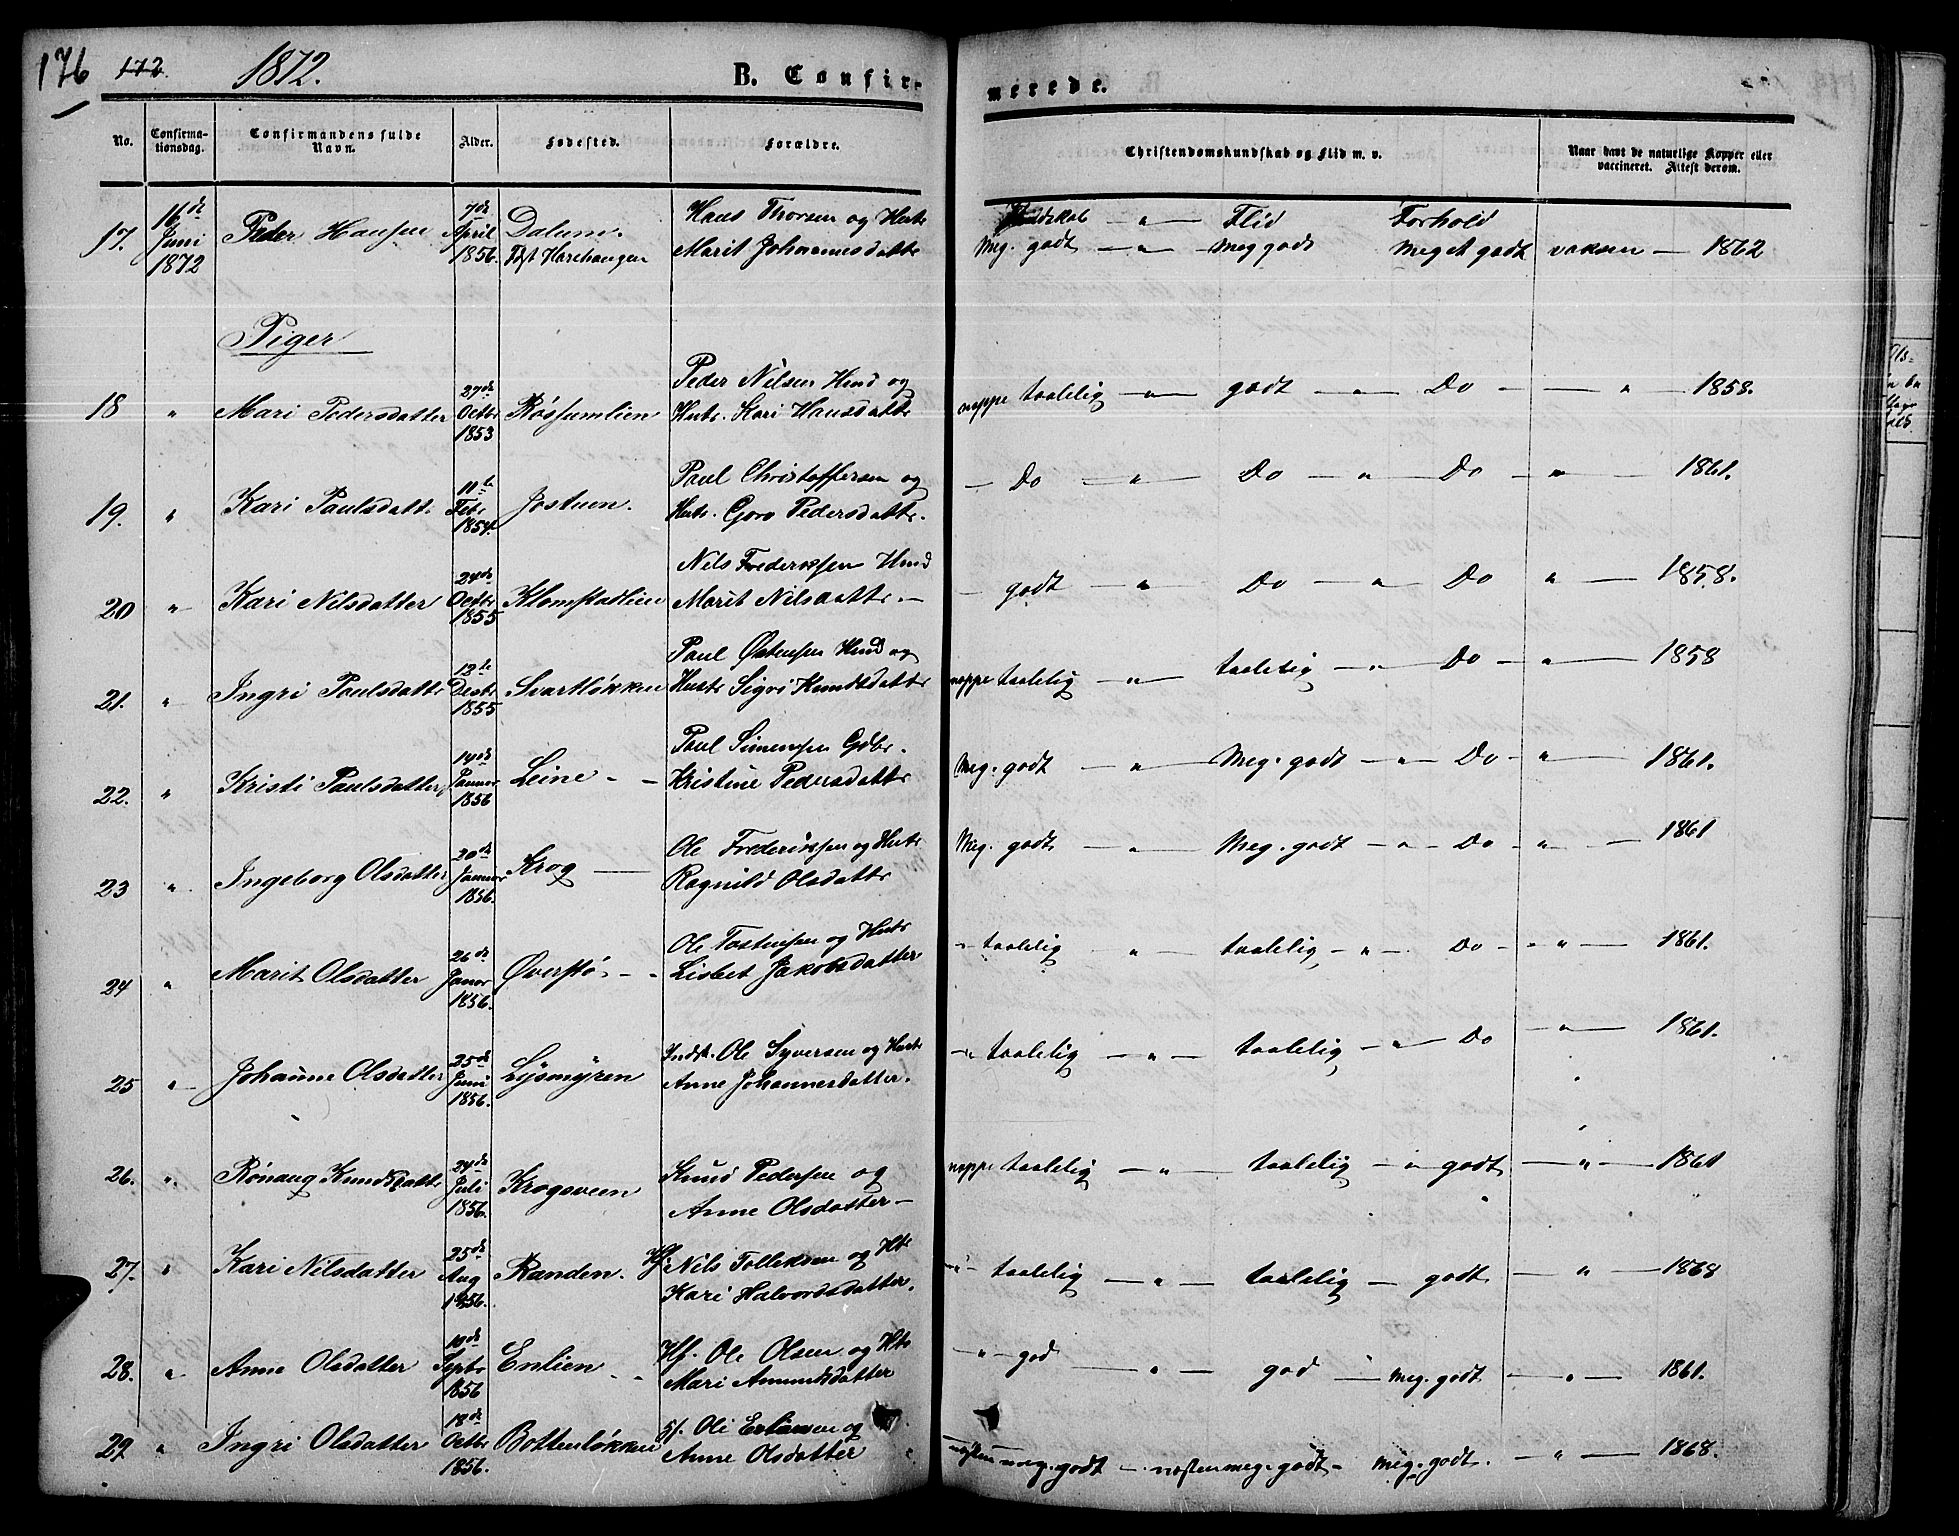 176 172. 1872. B. Confirmerede.
No. Confirmationsdag. Confirmandens fulde Navn. Alder. Fødested. Forældre. Christendomskundskab og Flid m. v. Naar havt de naturlige Kopper eller vaccineret. Attest derom.
17. 16de Juni 1872 Peder Hansen 7de April 1856. Dalum. Hans Thorsen og Hustr Marit Johannesdattr Kundskab Meg. godt " Flid Meg godt Forhold Meget godt 1862
Piger
18 " Mari Pedersdatter 27de Octbr 1853 Røssumlien Peder Nilsen Hund og Hustr. Kari Hansdattr neppe taalelig " godt " Do " 1858.
19. " Kari Paulsdatt. 11te Febr 1854. Jostuen. Paul Christoffersen og Hustr. Goro Pedersdattr. Do " Do " Do " 1861.
20 " Kari Nilsdatter 24de Octbr 1855 Klomstadlien Nils Frederiksen Hund Marit Nilsdattr. godt " Do " Do " 1858.
21. " Ingri Paulsdattr 12te Decbr 1855 Svartløkken Paul Østensen Hund og Hustr Sigri Knudsdattr neppe taalelig " taalelig " Do " 1858
22. " Kristi Paulsdatter 14de Januar 1856 Leine Paul Simensen Gdbr. Kristine Pedersdattr Meg. godt " Meg. godt " Do " 1861.
23 " Ingeborg Olsdatter 20de Januar 1856. Krog Ole Frederiksen og Hustr Ragnild Olsdattr Meg. godt " Meg. godt " Do " 1861
24 " Marit Olsdatter 26de Janor 1856. Øverstø Ole Tostensen og Hustr Lisbet Jakobsdatter " taalelig " taalelig " Do " 1861.
25 " Johanne Olsdatter 25de Juni 1856. Lysmyren Indst. Ole Syversen og Hustr Anne Johannesdatter. " taalelig " taalelig " Do " 1861.
26. " Rønaug Knudsdattr 24de Juli 1856. Krogsveen Knud Pedersen og Anne Olsdatter neppe taalelig " taalelig " godt " 1861
27. " Kari Nilsdatter 25de Aug 1856. Randen. Hf. Nils Tolleksen og Htr Kari Halvordsdatter. " taalelig " taalelig godt " 1868
28. " Anne Olsdatter 10de Septbr 1856 Enlien Hf. Ole Olsen og Htr Mari Amundsdatter " god " god Meg. godt " 1861.
29 " Ingri Olsdatter 18de Octbr 1856. Bottenløkken Ole Erlansen og Anne Olsdatter næsten meg. godt næsten meg. godt Meg. godt. " 1868.